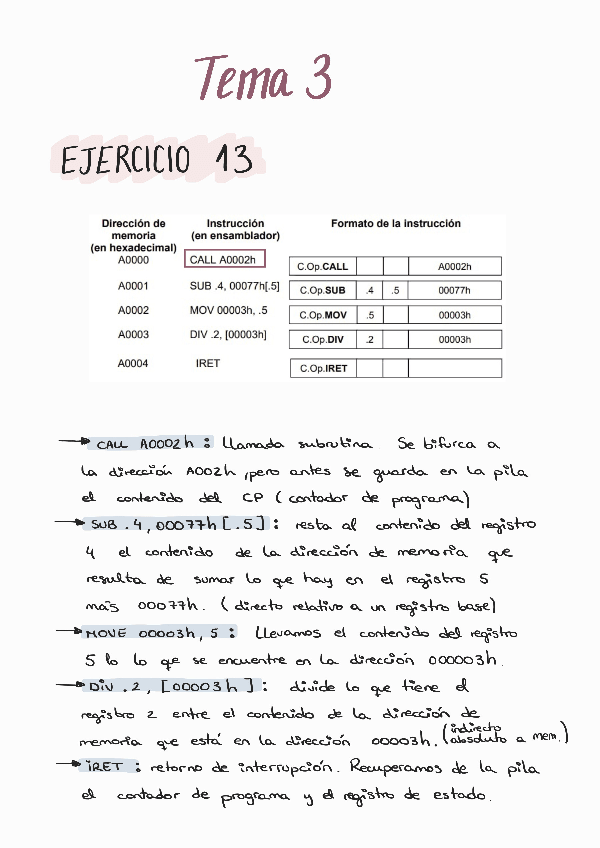 Tema 3
EJERCICIO 13
Dirección de memoria (en hexadecimal) Instrucción (en ensamblador) Formato de la instrucción
A0000 CALL A0002h C.Op.CALL A0002h
A0001 SUB .4, 00077h[.5] C.Op.SUB .4 .5 00077h
A0002 MOV 00003h, .5 C.Op.MOV .5 00003h
A0003 DIV .2, [00003h] C.Op.DIV .2 00003h
A0004 IRET C.Op.IRET
CALL A0002h : Llamada subrutina. Se bifurca a
la dirección A002h, pero antes se guarda en la pila
el contenido del CP (contador de programa)
SUB .4, 00077h [.5] : resta al contenido del registro
4 el contenido de la dirección de memoria que
resulta de sumar lo que hay en el registro 5
más 00077h. (directo relativo a un registro base)
MOVE 00003h, 5 : Llevamos el contenido del registro
5 lo lo que se encuentre en la dirección 000003h.
DIV .2, [00003h] : divide lo que tiene el
registro 2 entre el contenido de la dirección de
memoria que está en la dirección 00003h. (indirecto absoluto a mem.)
IRET : retorno de interrupción. Recuperamos de la pila
el contador de programa y el registro de estado.